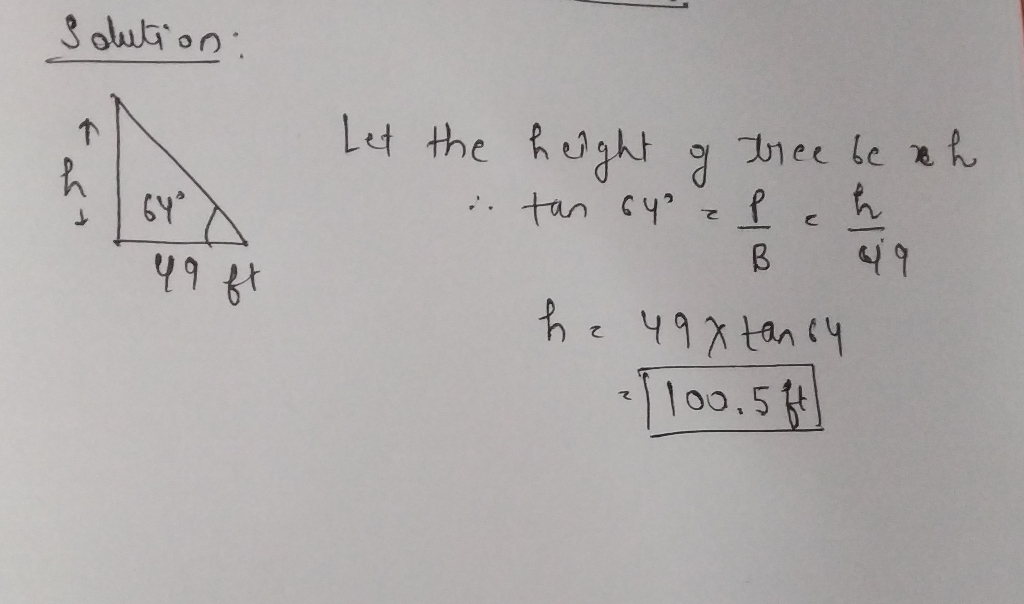 Solution:
h
64°
49 ft
Let the height of tree be h
∴ tan 64° = P/B = h/49
h = 49 x tan 64
= 100.5 ft